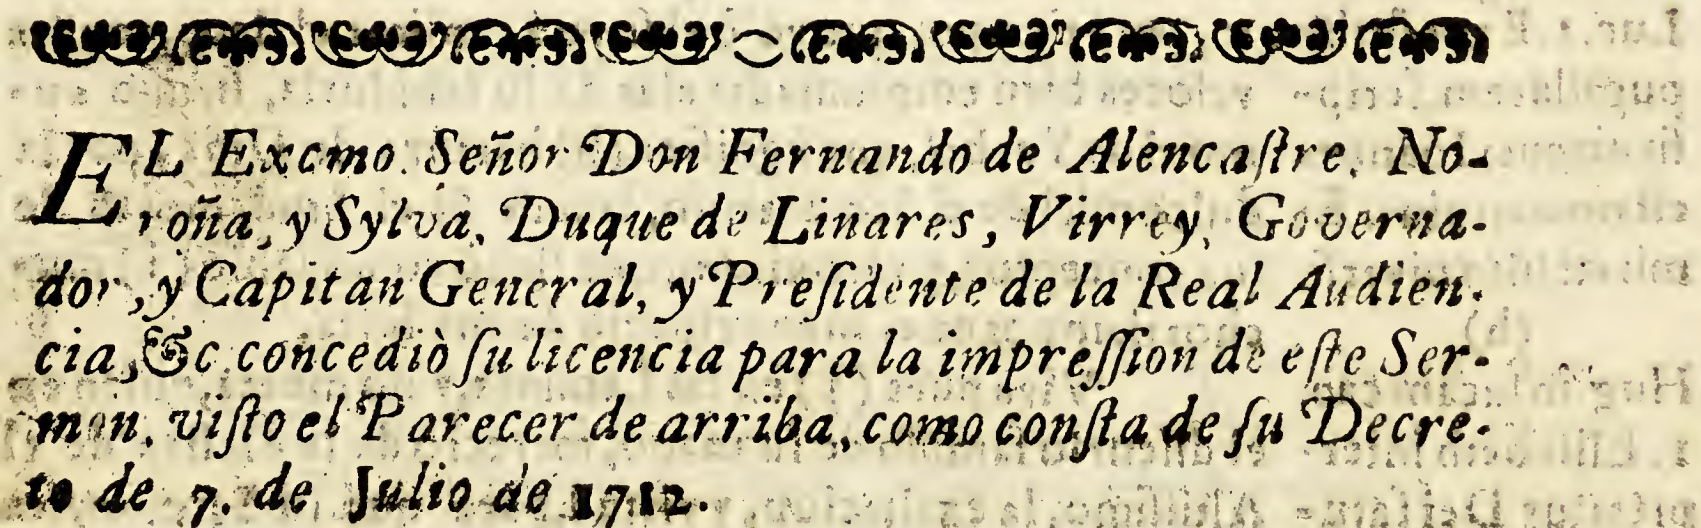 EL Excmo. Señor Don Fernando de Alencaſtre, No-
roña, y Sylva, Duque de Linares, Virrey, Governa-
dor, y Capitan General, y Preſidente de la Real Audien-
cia, &c. concediò ſu licencia para la impreſſion de eſte Ser-
mon, viſto el Parecer de arriba, como conſta de ſu Decre-
to de 7. de Julio de 1712.